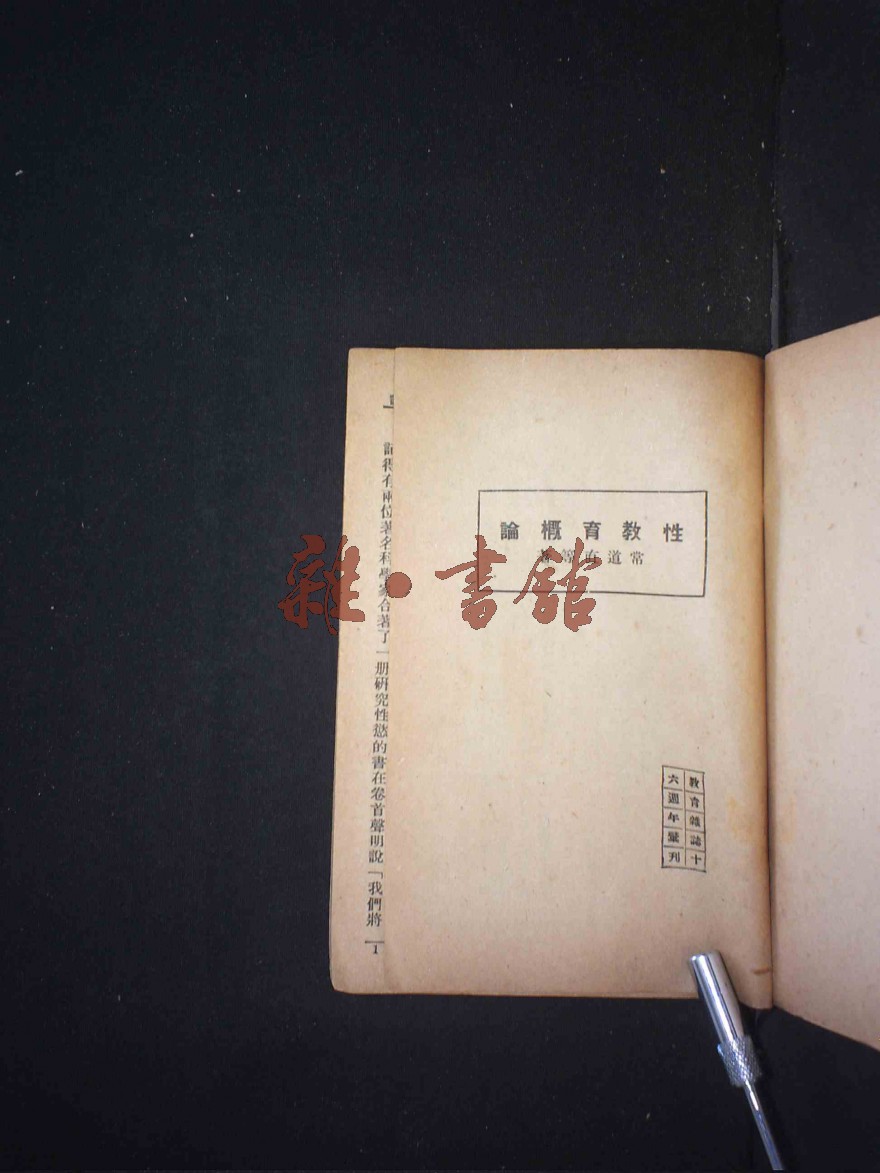 性教育概論
常道直等著
教育雜誌十
六週年彙刊
記得有兩位著名科學家合著了一册研究性慾的書在卷首聲明說「我們將
1
雜·書館